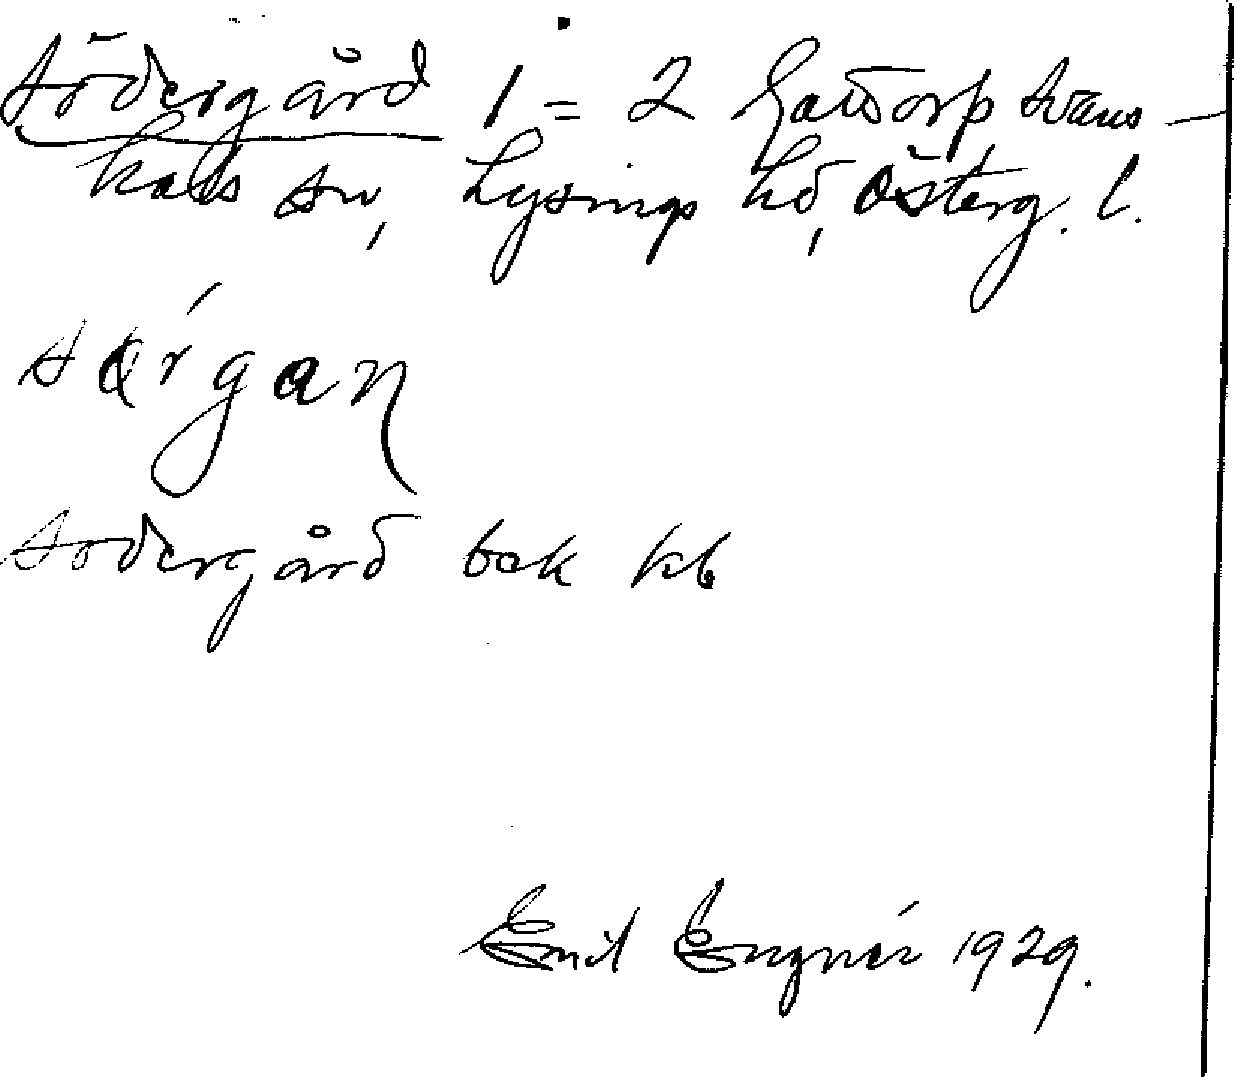 Södergård 1=2 Gattorp Sväns-
hals sn, Lysings hd, Österg. l.
sörgan
Södergård bok kb
Emil Engnér 1929.